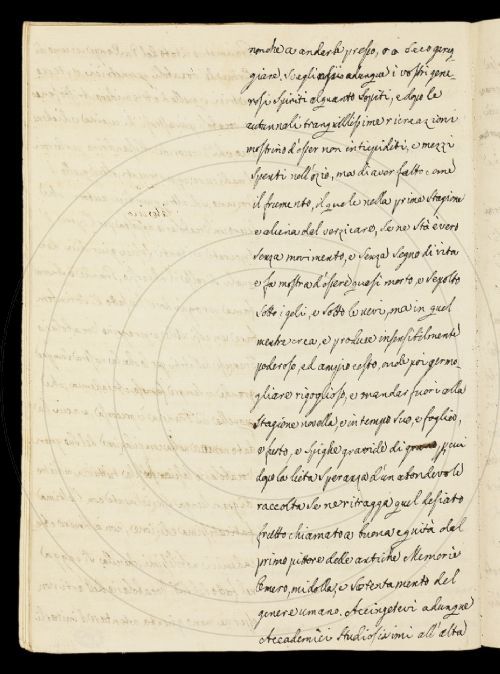 nonche a anderle presso, o a seco gareg
giare. Sveglinsi adunque i vostri gene
rosi spiriti alquanto sopiti, e dopo le
autunnali tranquillissime ricreazioni
mostrino d'esser non intiepiditi, e mezzi
spenti nell'ozio, ma di aver fatto come
il frumento, il quale nella prima stagione
e aliena del verzicare, se ne stà è vero
senza movimento, e senza segno di vita
e fa mostra d'essere quasi morto, e sepolto
sotto i geli, e sotto le nevi, ma in quel
mentre crea, e produce insensibilmente
poderoso, ed ampio cesto, onde poi germo-
gliare rigoglioso, e mandar fuori alla
stagione novella, e in tempo suo, e foglie,
e fusto, e spighe gravide di grano, per cui
dopo la lieta speranza d'un abondevole
raccolta se ne ritragga quel desiato
frutto chiamato a buona equità dal
primo pittore delle antiche memorie
Omero, midolla, e sostentamento del
genere umano. Accingetevi adunque
Accademici studiosissimi all'alta